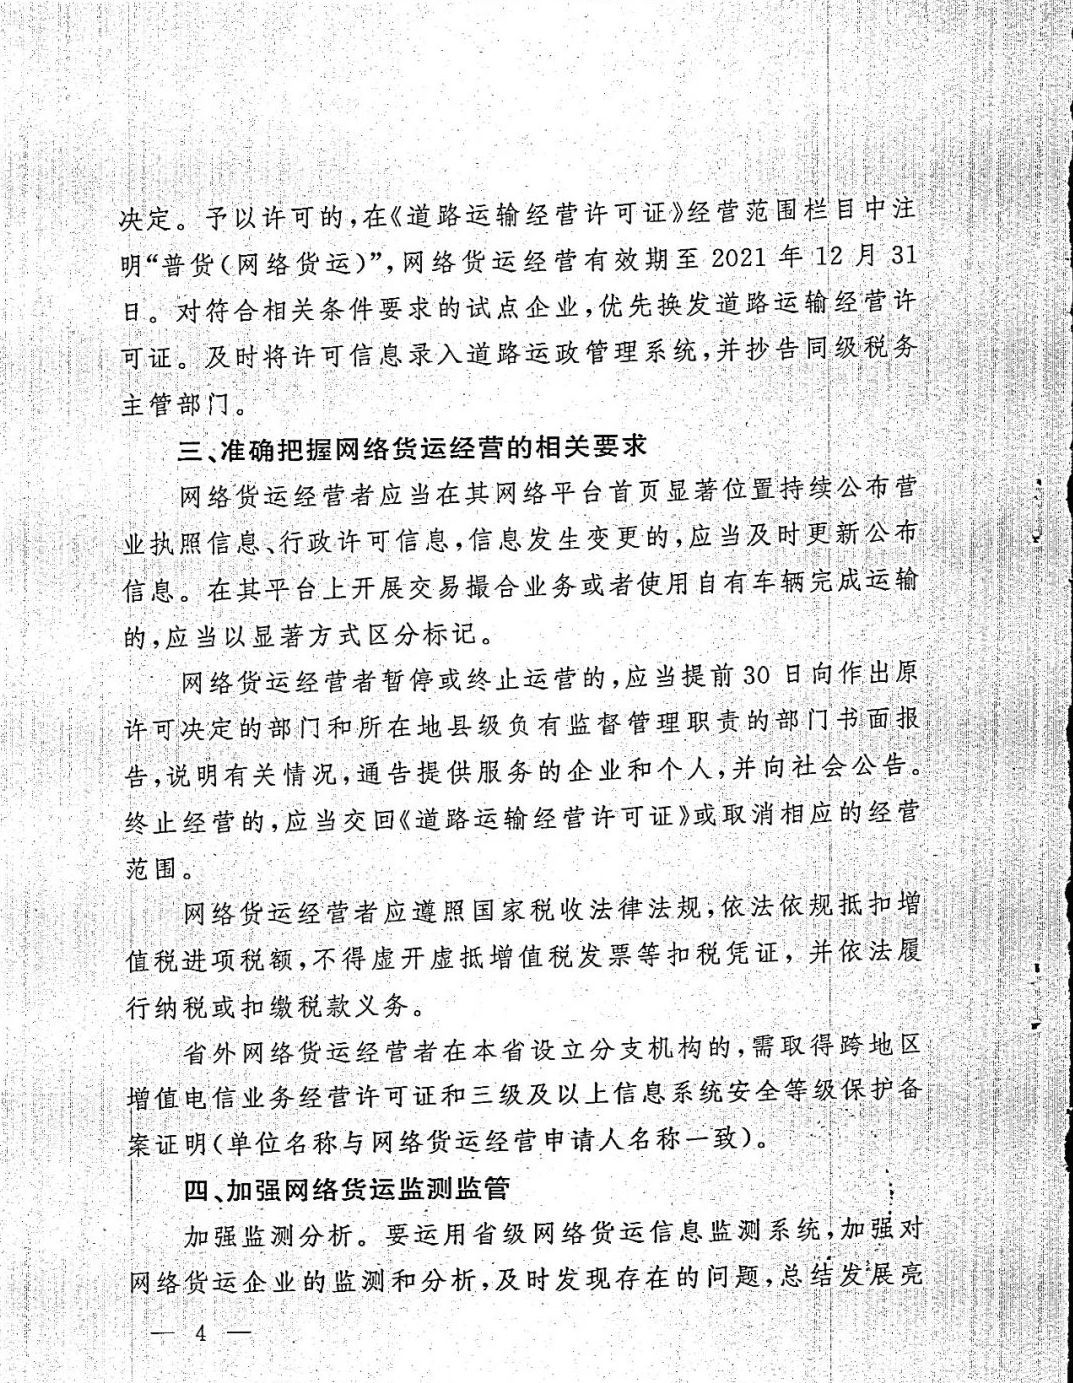 决定。予以许可的,在《道路运输经营许可证》经营范围栏目中注
明“普货(网络货运)”,网络货运经营有效期至 2021 年 12 月 31
日。对符合相关条件要求的试点企业,优先换发道路运输经营许
可证。及时将许可信息录入道路运政管理系统,并抄告同级税务
主管部门。
三、准确把握网络货运经营的相关要求
网络货运经营者应当在其网络平台首页显著位置持续公布营
业执照信息、行政许可信息,信息发生变更的,应当及时更新公布
信息。在其平台上开展交易撮合业务或者使用自有车辆完成运输
的,应当以显著方式区分标记。
网络货运经营者暂停或终止运营的,应当提前 30 日向作出原
许可决定的部门和所在地县级负有监督管理职责的部门书面报
告,说明有关情况,通告提供服务的企业和个人,并向社会公告。
终止经营的,应当交回《道路运输经营许可证》或取消相应的经营
范围。
网络货运经营者应遵照国家税收法律法规,依法依规抵扣增
值税进项税额,不得虚开虚抵增值税发票等扣税凭证,并依法履
行纳税或扣缴税款义务。
省外网络货运经营者在本省设立分支机构的,需取得跨地区
增值电信业务经营许可证和三级及以上信息系统安全等级保护备
案证明(单位名称与网络货运经营申请人名称一致)。
四、加强网络货运监测监管
加强监测分析。要运用省级网络货运信息监测系统,加强对
网络货运企业的监测和分析,及时发现存在的问题,总结发展亮
— 4 —